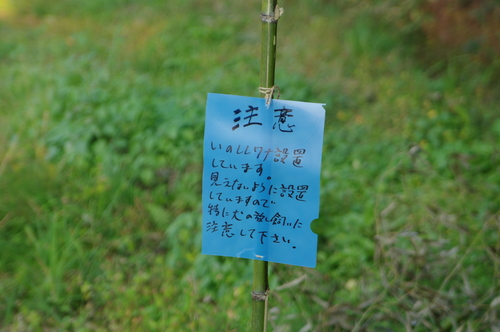 注意
いのししワナ設置
しています。
見えないように設置
していますので
特に犬の放し飼いに
注意して下さい。